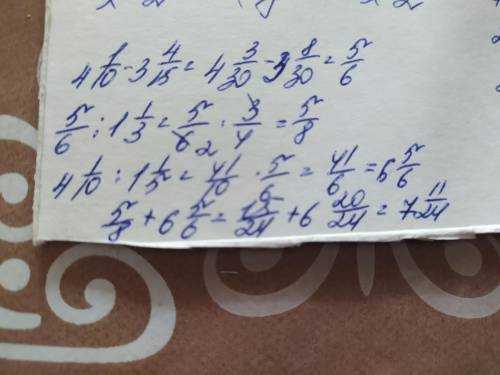 4 1/10 - 3 4/15 = 4 3/30 - 3 8/30 = 5/6
5/6 : 1 1/3 = 5/6 2 · 3/4 = 5/8
4 1/10 : 1 1/5 = 41/10 · 5/6 = 41/6 = 6 5/6
5/8 + 6 5/6 = 15/24 + 6 20/24 = 7 11/24